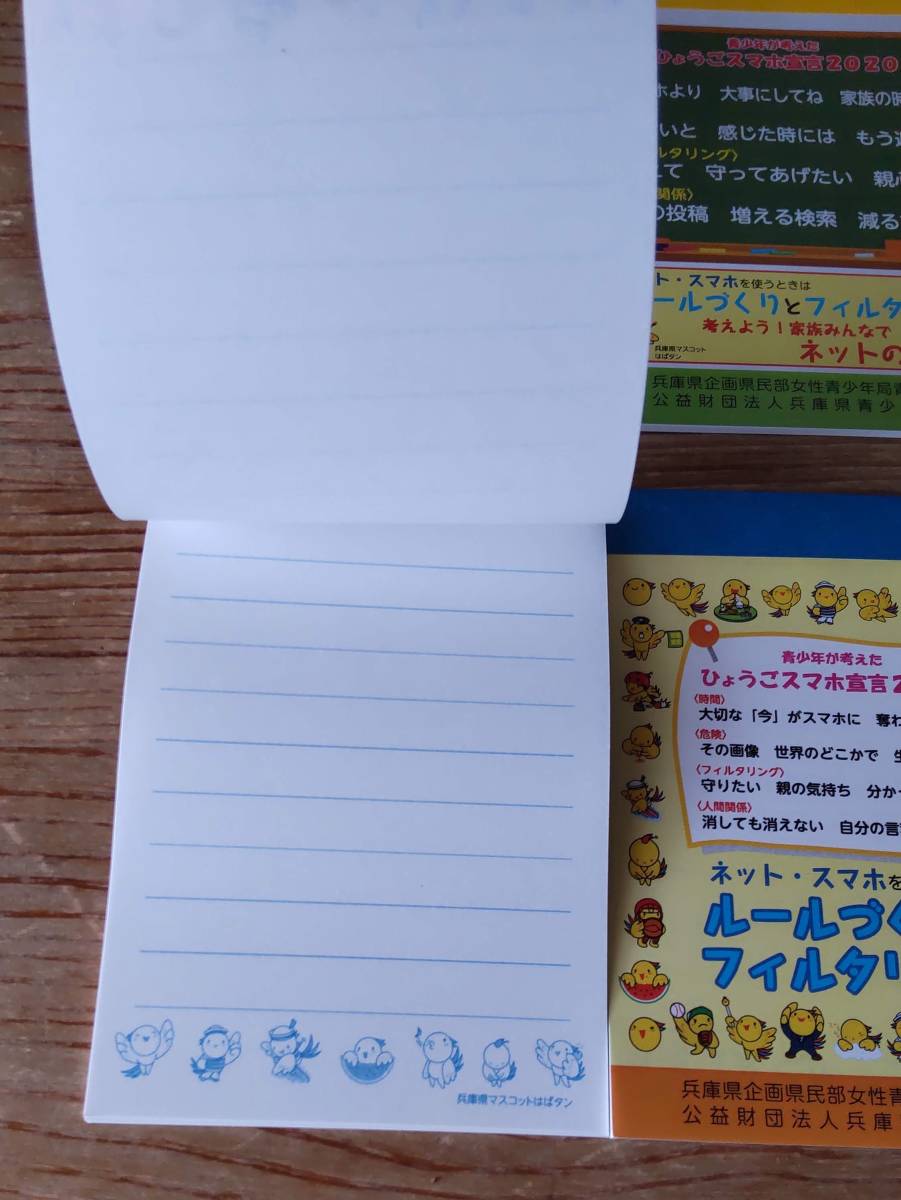 青少年が考えた
ひょうごスマホ宣言2020
ホより 大事にしてね 家族の時
いと 感じた時には もう
ルタリング〉
て 守ってあげたい 親心
関係〉
の投稿 増える検索 減る
ト・スマホを使うときは
ールづくりとフィルタ
考えよう！家族みんなで
ネットの
兵庫県マスコット
はばタン
兵庫県企画県民部女性青少年局青
公益財団法人兵庫県青少
青少年が考えた
ひょうごスマホ宣言2
〈時間〉
大切な「今」がスマホに 奪わ
〈危険〉
その画像 世界のどこかで 生
〈フィルタリング〉
守りたい 親の気持ち 分かっ
〈人間関係〉
消しても消えない 自分の言
ネット・スマホを
ルールづく
フィルタリ
兵庫県企画県民部女性青
公益財団法人兵庫
兵庫県マスコットはばタン